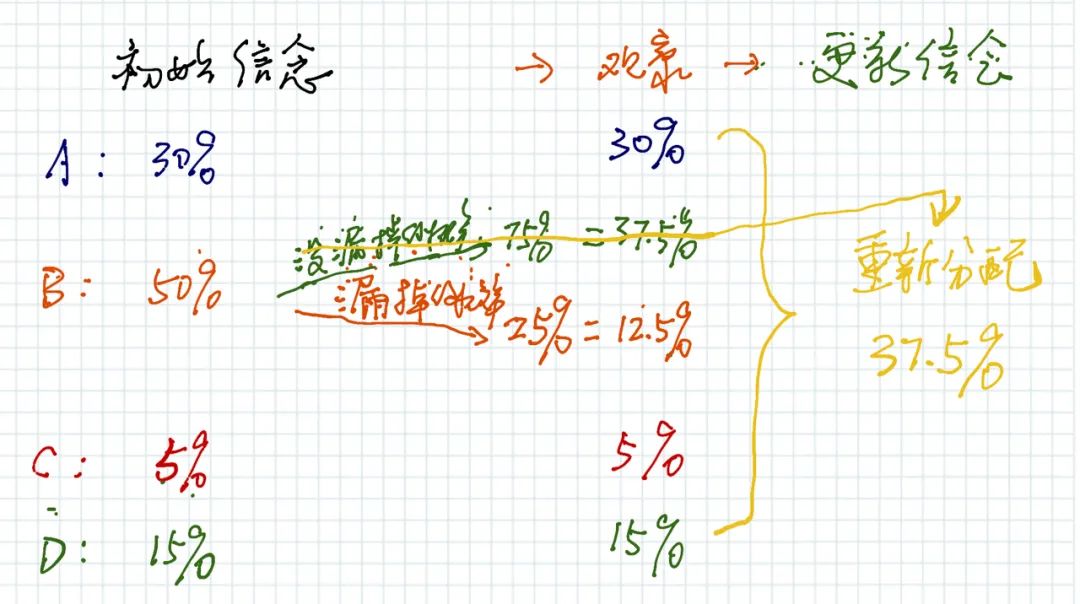 初始信念 → 观察 → 更新信念
A: 30% 30%
没漏掉的概率: 75% = 37.5%
B: 50%
漏掉的概率 25% = 12.5%
重新分配
37.5%
C: 5% 5%
D: 15% 15%